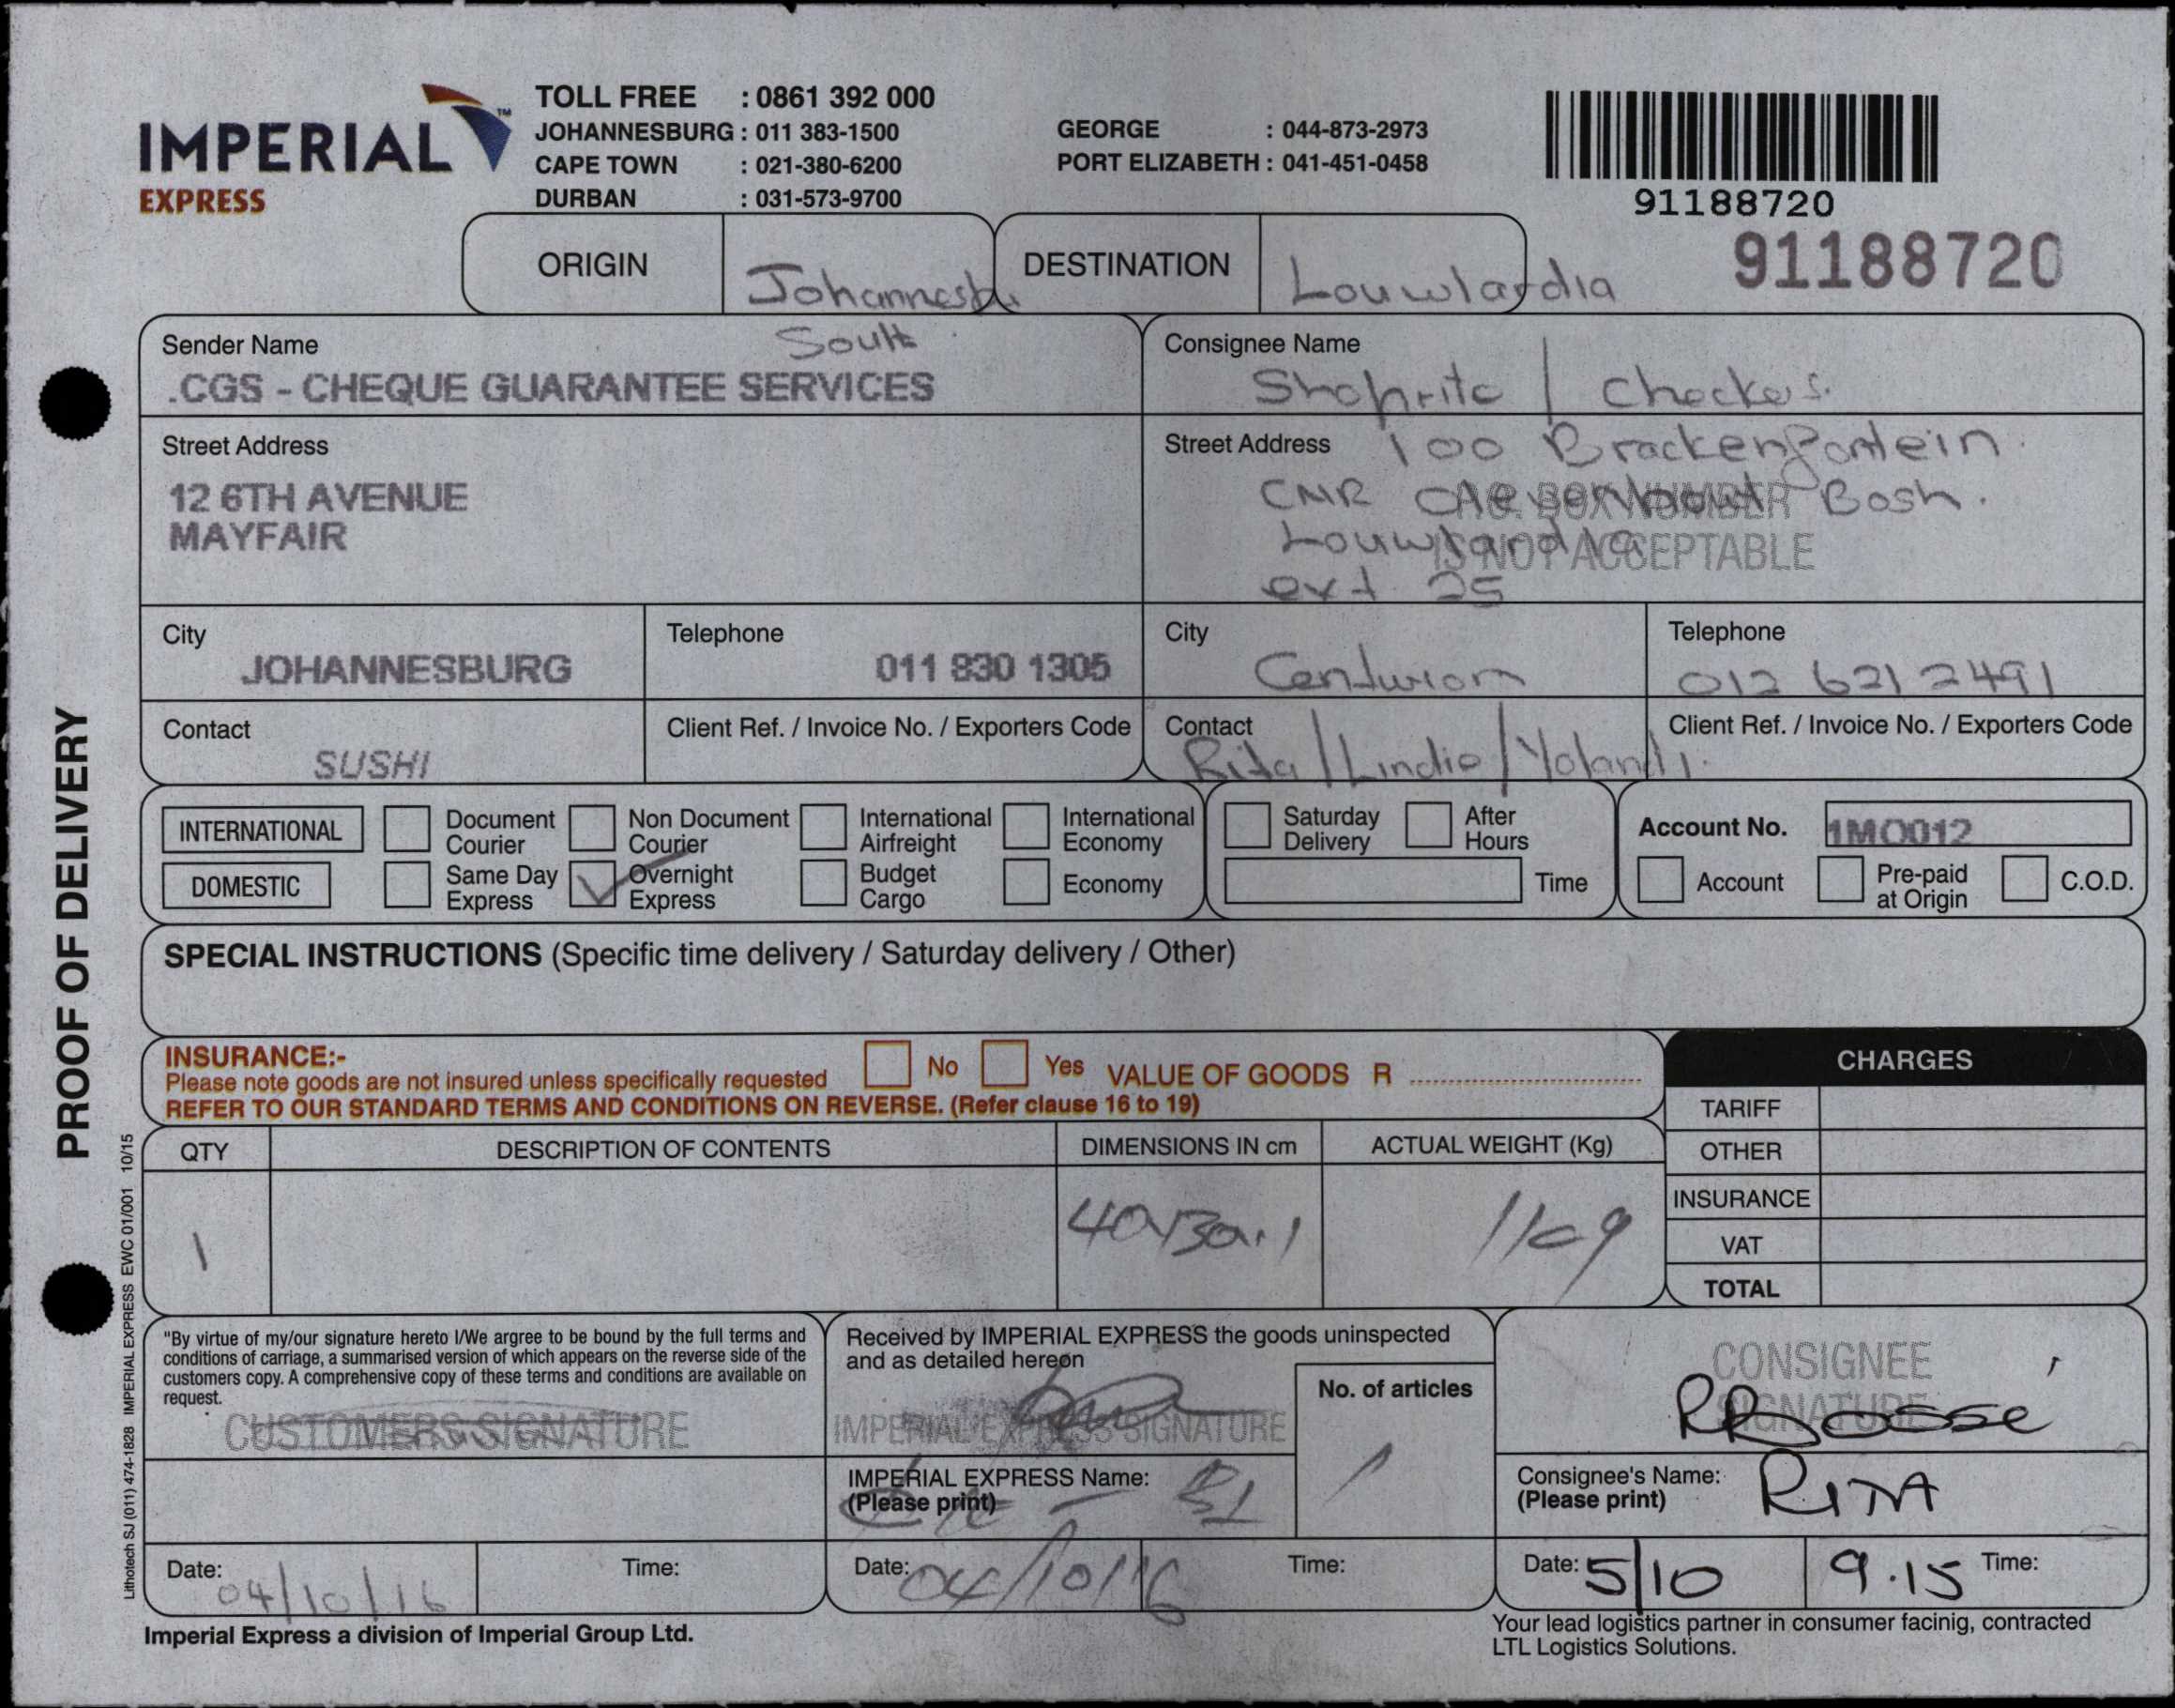 IMPERIAL™
EXPRESS
TOLL FREE : 0861 392 000
JOHANNESBURG : 011 383-1500
CAPE TOWN : 021-380-6200
DURBAN : 031-573-9700
GEORGE : 044-873-2973
PORT ELIZABETH : 041-451-0458
91188720
91188720
ORIGIN
South
DESTINATION Louwlardia
Sender Name
.CGS - CHEQUE GUARANTEE SERVICES
Consignee Name
Shoprite / Checkers.
Street Address
12 6TH AVENUE
MAYFAIR
Street Address 100 Brackenfontein
CNR Bosh.
P.O. BOX NUMBER
Louwlardia
IS NOT ACCEPTABLE
ext 25
City
JOHANNESBURG
Telephone
011 830 1305
City
Centurion
Telephone
012 621 2491
Contact
SUSHI
Client Ref. / Invoice No. / Exporters Code
Contact
Rita / Lindie / Yolandi.
Client Ref. / Invoice No. / Exporters Code
INTERNATIONAL
Document Courier
Non Document Courier
International Airfreight
International Economy
DOMESTIC
Same Day Express
Overnight Express
Budget Cargo
Economy
Saturday Delivery
After Hours
Time
Account No. 1MO012
Account
Pre-paid at Origin
C.O.D.
SPECIAL INSTRUCTIONS (Specific time delivery / Saturday delivery / Other)
INSURANCE:-
Please note goods are not insured unless specifically requested
No Yes VALUE OF GOODS R
REFER TO OUR STANDARD TERMS AND CONDITIONS ON REVERSE. (Refer clause 16 to 19)
CHARGES
TARIFF
OTHER
INSURANCE
VAT
TOTAL
QTY
DESCRIPTION OF CONTENTS
DIMENSIONS IN cm
ACTUAL WEIGHT (Kg)
1
40x30x1
1kg
"By virtue of my/our signature hereto I/We argree to be bound by the full terms and
conditions of carriage, a summarised version of which appears on the reverse side of the
customers copy. A comprehensive copy of these terms and conditions are available on
request.
CUSTOMERS SIGNATURE
Date: 04/10/16
Time:
Received by IMPERIAL EXPRESS the goods uninspected
and as detailed hereon
IMPERIAL EXPRESS SIGNATURE
No. of articles
1
IMPERIAL EXPRESS Name:
(Please print)
Date: 04/10/16
Time:
CONSIGNEE
SIGNATURE
Consignee's Name:
(Please print)
RITA
Date: 5/10
9.15 Time:
Imperial Express a division of Imperial Group Ltd.
Your lead logistics partner in consumer facinig, contracted
LTL Logistics Solutions.
PROOF OF DELIVERY
Lithotech SJ (011) 474-1828 IMPERIAL EXPRESS EWC 01/001 10/15